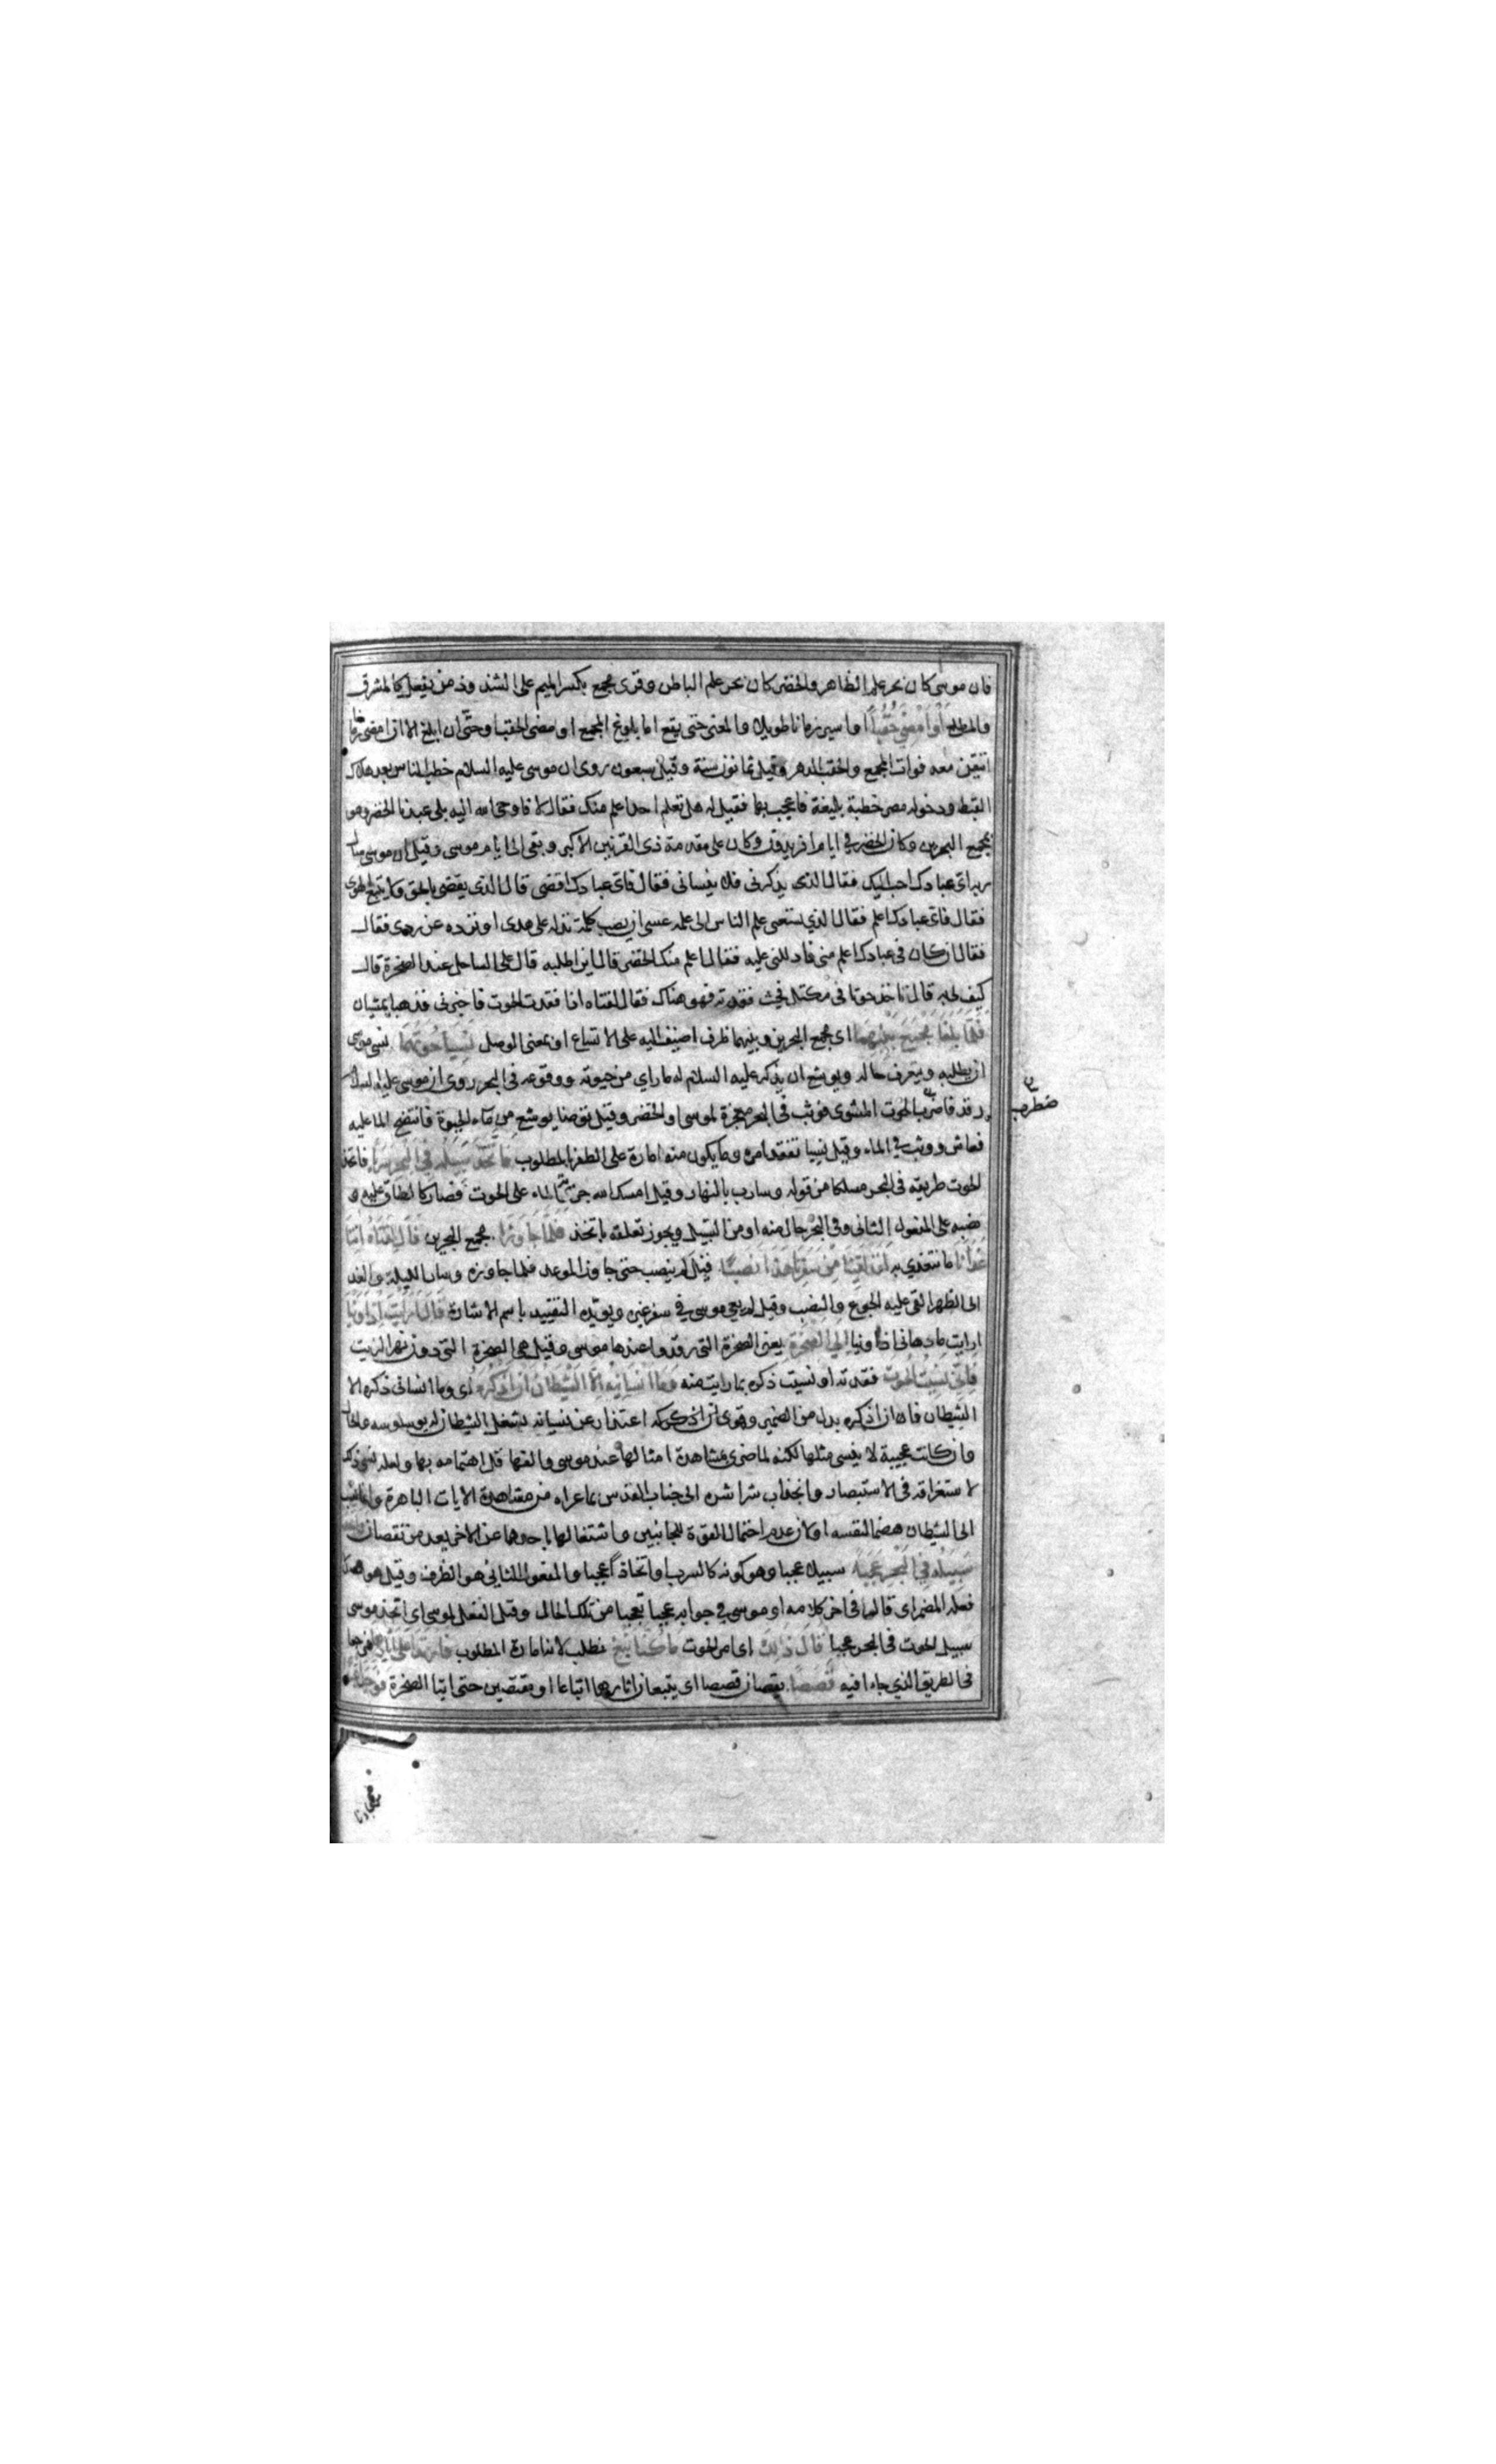 فان موسى كان بحر علم الظاهر والخضر كان بحر علم الباطن وقرئ مجمع بكسر الميم على الشذوذ من يفعل كالمشرق
والمطلع أو أمضي حقبا او اسير زمانا طويلا والمعنى حتى يقع اما بلوغ المجمع او مضى الحقب او حتى ان ابلغ الا ان امضى زمانا
اتيقن معه فوات المجمع والحقب الدهر وقيل ثمانون سنة وقيل سبعون روى ان موسى عليه السلام خطب الناس بعد هلاك
القبط ودخوله مصر خطبة بليغة فاعجب بها فقيل له هل تعلم احدا اعلم منك فقال لا فاوحى الله اليه بلى عبدنا الخضر وهو
بمجمع البحرين وكان الخضر في ايام افريدون وكان على مقدمة ذى القرنين الاكبر وبقى الى ايام موسى وقيل ان موسى سال
ربه اى عبادك احب اليك فقال الذى يذكرنى فلا ينسانى فقال فاى عبادك اقضى قال الذى يقضى بالحق ولا يتبع الهوى
فقال فاى عبادك اعلم فقال الذي يبتغى علم الناس الى علمه عسى ان يصيب كلمة تدله على هدى او ترده عن ردى فقال
فقال ان كان فى عبادك اعلم منى فادللنى عليه فقال اعلم منك الخضر قال اين اطلبه قال على الساحل عند الصخرة قال
كيف لى به قال تاخذ حوتا فى مكتل فحيث فقدته فهو هناك فقال لفتاه اذا فقدت الحوت فاخبرنى فذهبا يمشيان
فلما بلغا مجمع بينهما اى مجمع البحرين وبينهما ظرف اضيف اليه على الاتساع او بمعنى الوصل نسيا حوتهما نسى موسى
ان يطلبه ويتعرف حاله ويوشع ان يذكر عليه السلام له ما راي من حيوته ووقوعه فى البحر روى ان موسى عليه السلام
رقد فاضرب الحوت المشوى فوثب فى البحر معجزة لموسى او الخضر وقيل توضا يوشع من ماء الحيوة فانتضح الماء عليه
ضطرب
فعاش ووثب في الماء وقيل نسيا تفقد امره وما يكون منه امارة على الظفر بالمطلوب فاتخذ سبيله في البحر سربا فاتخذ
الحوت طريقه فى البحر مسلكا من قوله وسارب بالنهار وقيل امسك الله جرية الماء على الحوت فصار كالطاق عليه و
نصبه على المفعول الثانى وفى البحر حال منه او من السبيل ويجوز تعلقه باتخذ فلما جاوزا مجمع البحرين قال لفتاه اتنا
غدانا ما نتغدي به لقد لقينا من سفرنا هذا نصبا قيل لم ينصب حتى جاوز الموعد فلما جاوزه وسار الليلة والغد
الى الظهر القى عليه الجوع والنصب وقيل لم يعي موسى في سفر غيره ويؤيده التقييد باسم الاشارة قال أرأيت اذ اوينا
ارايت ما دهانى اذ اوينا إلى الصخرة يعنى الصخرة التى رقد عندها موسى وقيل هى الصخرة التى دون نهر الزيت
فاني نسيت الحوت فقدته او نسيت ذكره بما رايت منه وما انسانيه الا الشيطان ان اذكره اى وما انسانى ذكره الا
الشيطان فان ان اذكره بدل من الضمير وقرئ ان اذكركه اعتذار عن نسيانه بشغل الشيطان له بوساوسه والحال
وان كانت عجيبة لا ينسى مثلها لكنه لما ضرى بمشاهدة امثالها عند موسى والفها قل اهتمامه بها ولعله نسى ذلك
لاستغراقه فى الاستبصار وانجذاب شراشره الى جناب القدس بما عراه من مشاهدة الايات الباهرة وانما نسبه
الى الشيطان هضما لنفسه او لان عدم احتمال القوة للجانبين واشتغالها باحدهما عن الاخر يعد من نقصان
سبيله في البحر عجبا سبيلا عجبا وهو كونه كالسرب او اتخاذا عجبا والمفعول الثانى هو الظرف وقيل هو مصدر
فعله المضمر اى قال فى اخر كلامه او موسى في جوابه عجبا تعجبا من تلك الحال وقيل الفعل لموسى اى اتخذ موسى
سبيل الحوت فى البحر عجبا قال ذلك اى امر الحوت ما كنا نبغ نطلب لانه امارة المطلوب فارتدا على آثارهما فرجعا
فى الطريق الذي جاءا فيه قصصا يقصان قصصا اى يتبعان اثارهما اتباعا او مقتصين حتى اتيا الصخرة فوجدا